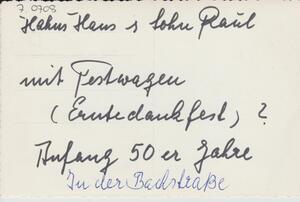 7 0708
Hahns Hans s Sohn Paul
mit Festwagen
(Erntedankfest) ?
Anfang 50er Jahre
In der Bachstraße